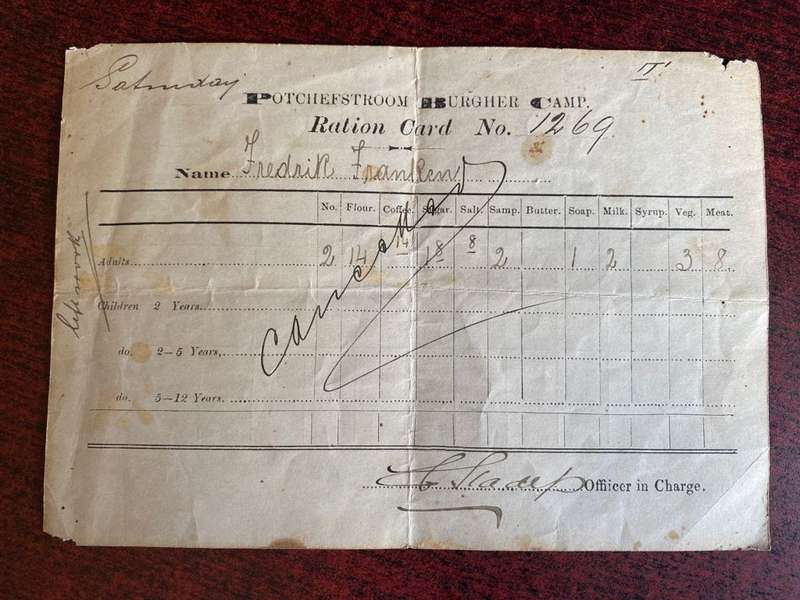 Saturday
II
POTCHEFSTROOM BURGHER CAMP.
Ration Card No. 1269
Name Fredrik Franken
No. Flour. Coffee. Sugar. Salt. Samp. Butter. Soap. Milk. Syrup. Veg. Meat.
Adults 2 14 14 18 8 2 1 2 3 8
Children 2 Years.
do. 2—5 Years,
do. 5—12 Years.
cancelled
Officer in Charge.